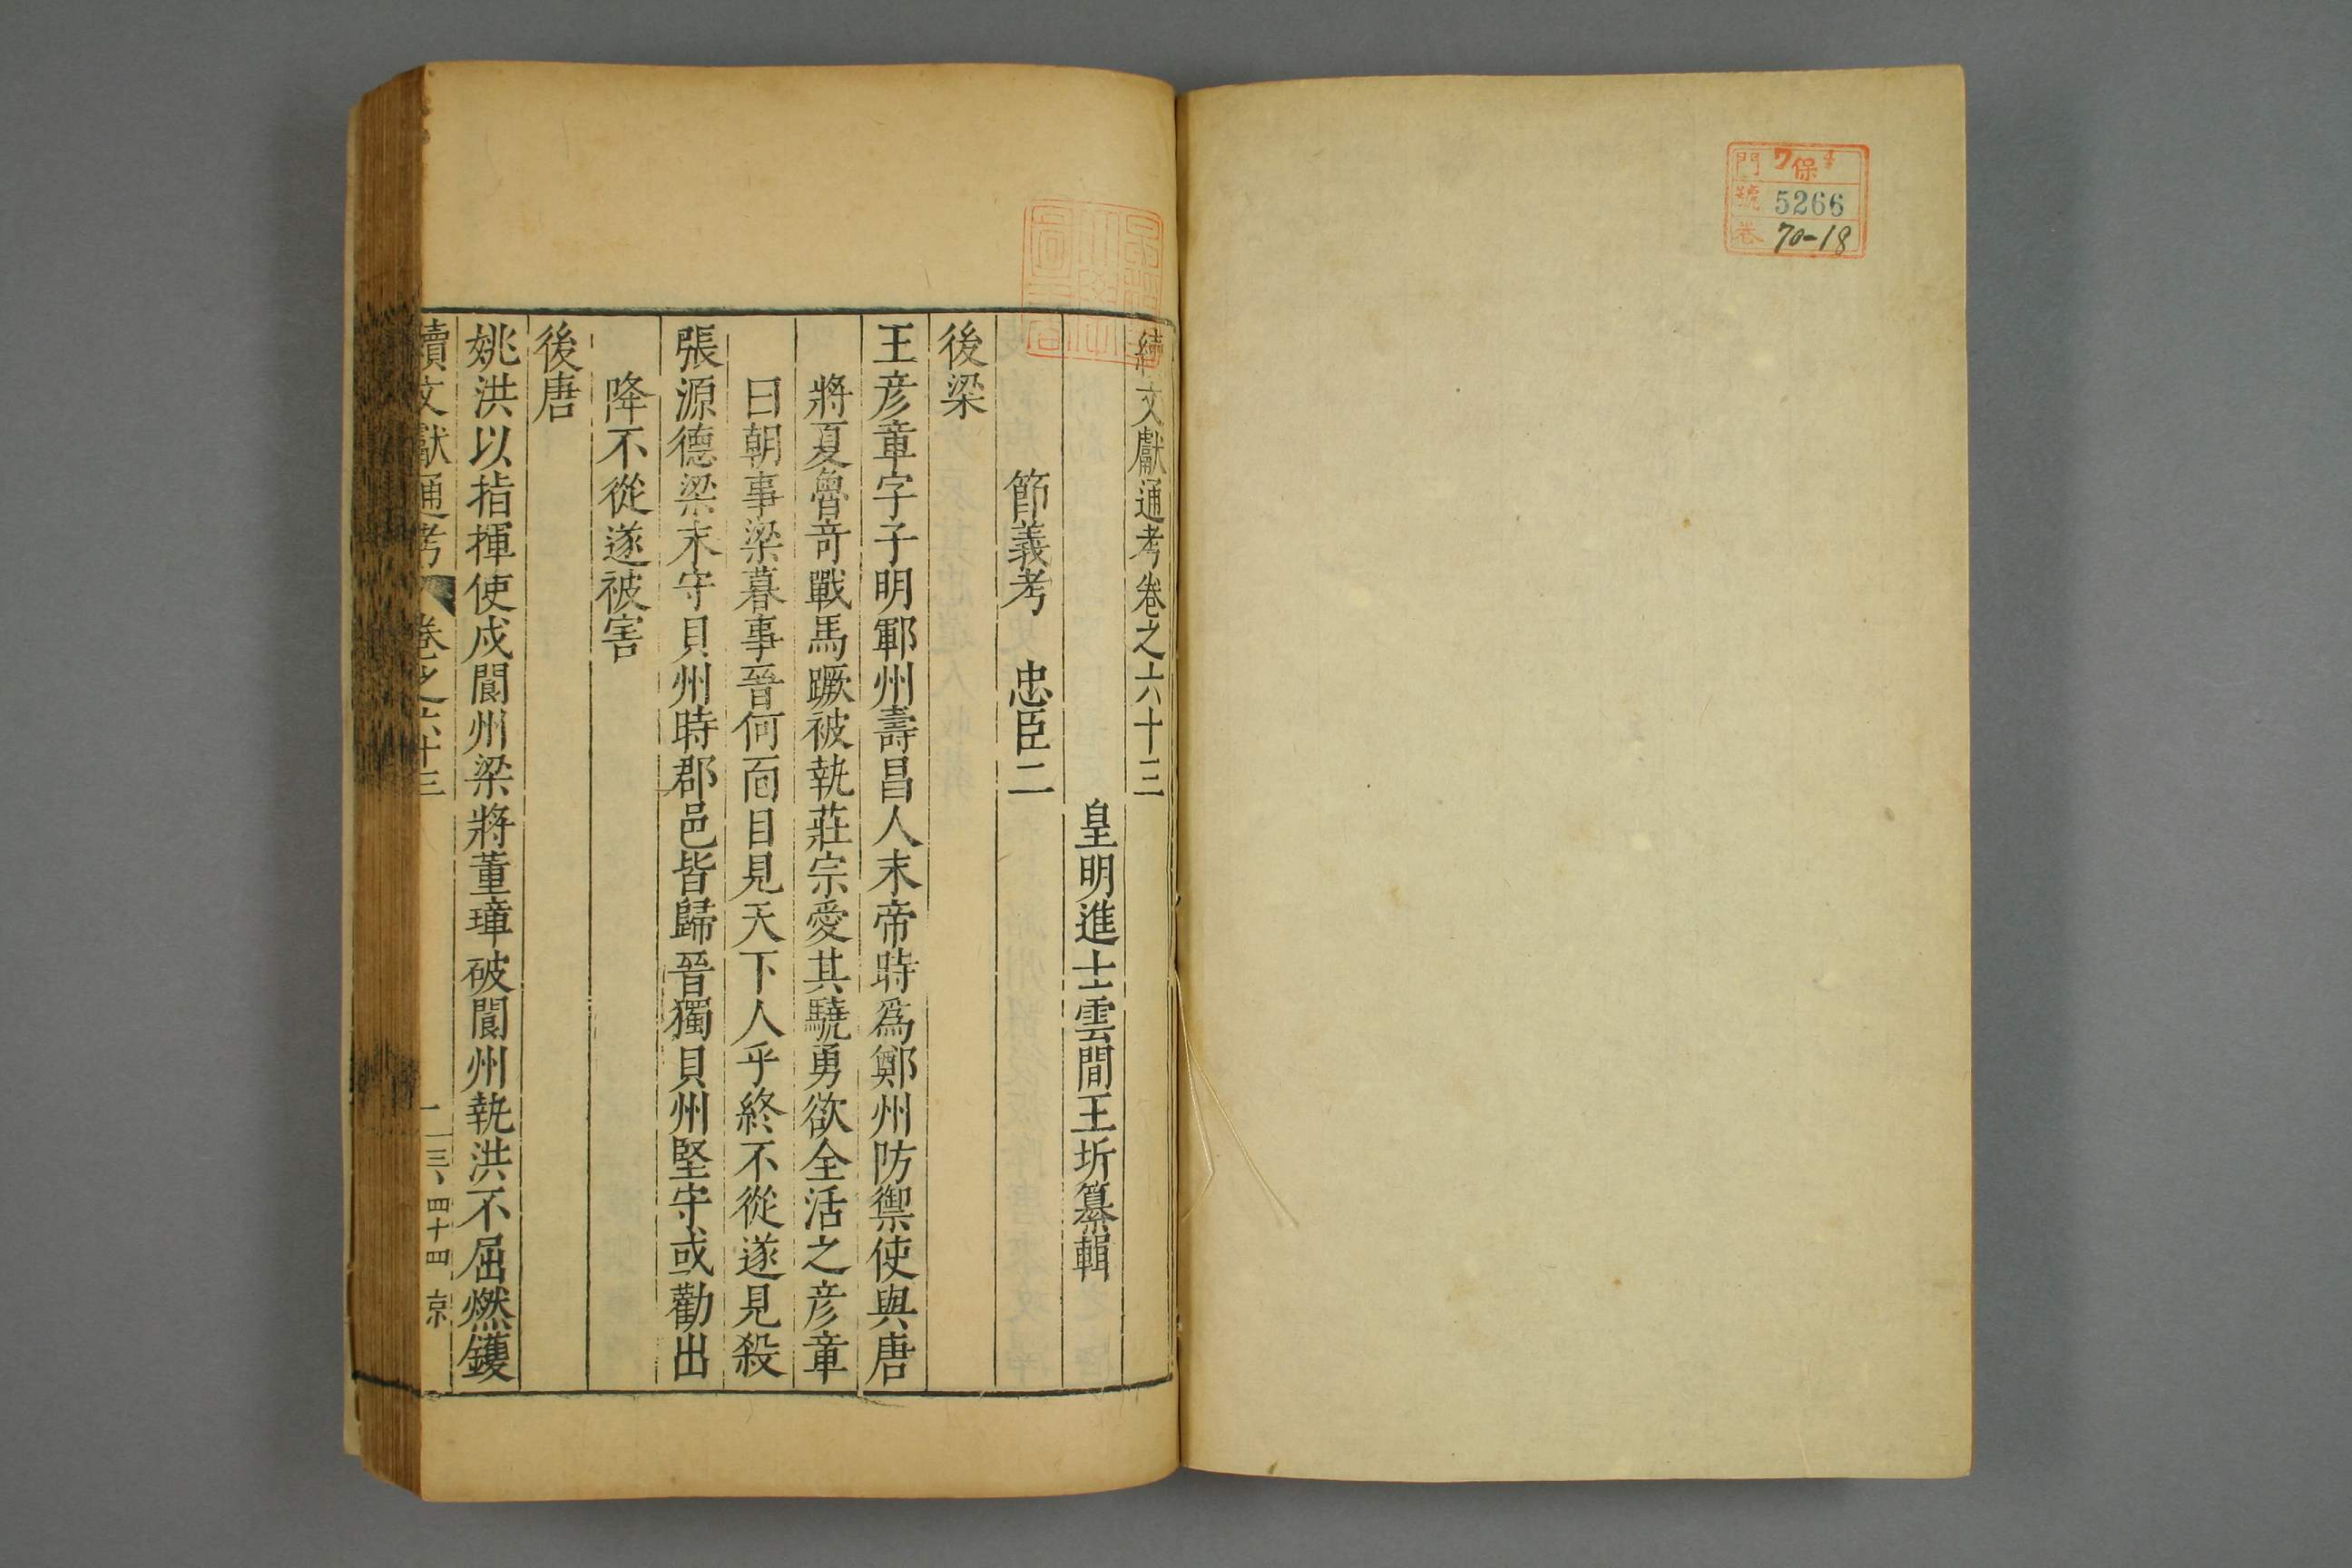 門 7保4
號 5266
卷 70-18
續文獻通考卷之六十三
皇明進士雲間王圻纂輯
節義考 忠臣二
後梁
王彥章字子明鄆州壽昌人末帝時爲鄭州防禦使與唐
將夏魯奇戰馬蹶被執莊宗愛其驍勇欲全活之彥章
曰朝事梁暮事晉何面目見天下人乎終不從遂見殺
張源德梁末守貝州時郡邑皆歸晉獨貝州堅守或勸出
降不從遂被害
後唐
姚洪以指揮使戍閬州梁將董璋破閬州執洪不屈燃鑊
續文獻通考 卷之六十三 一 三、四十四 京